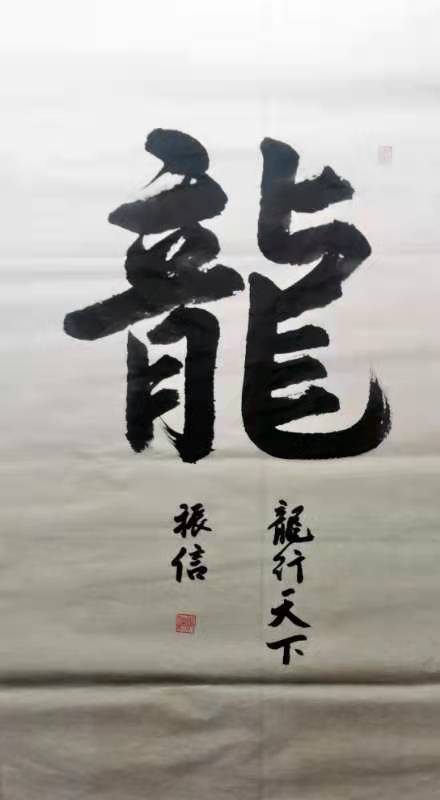 龍
龍行天下
振信